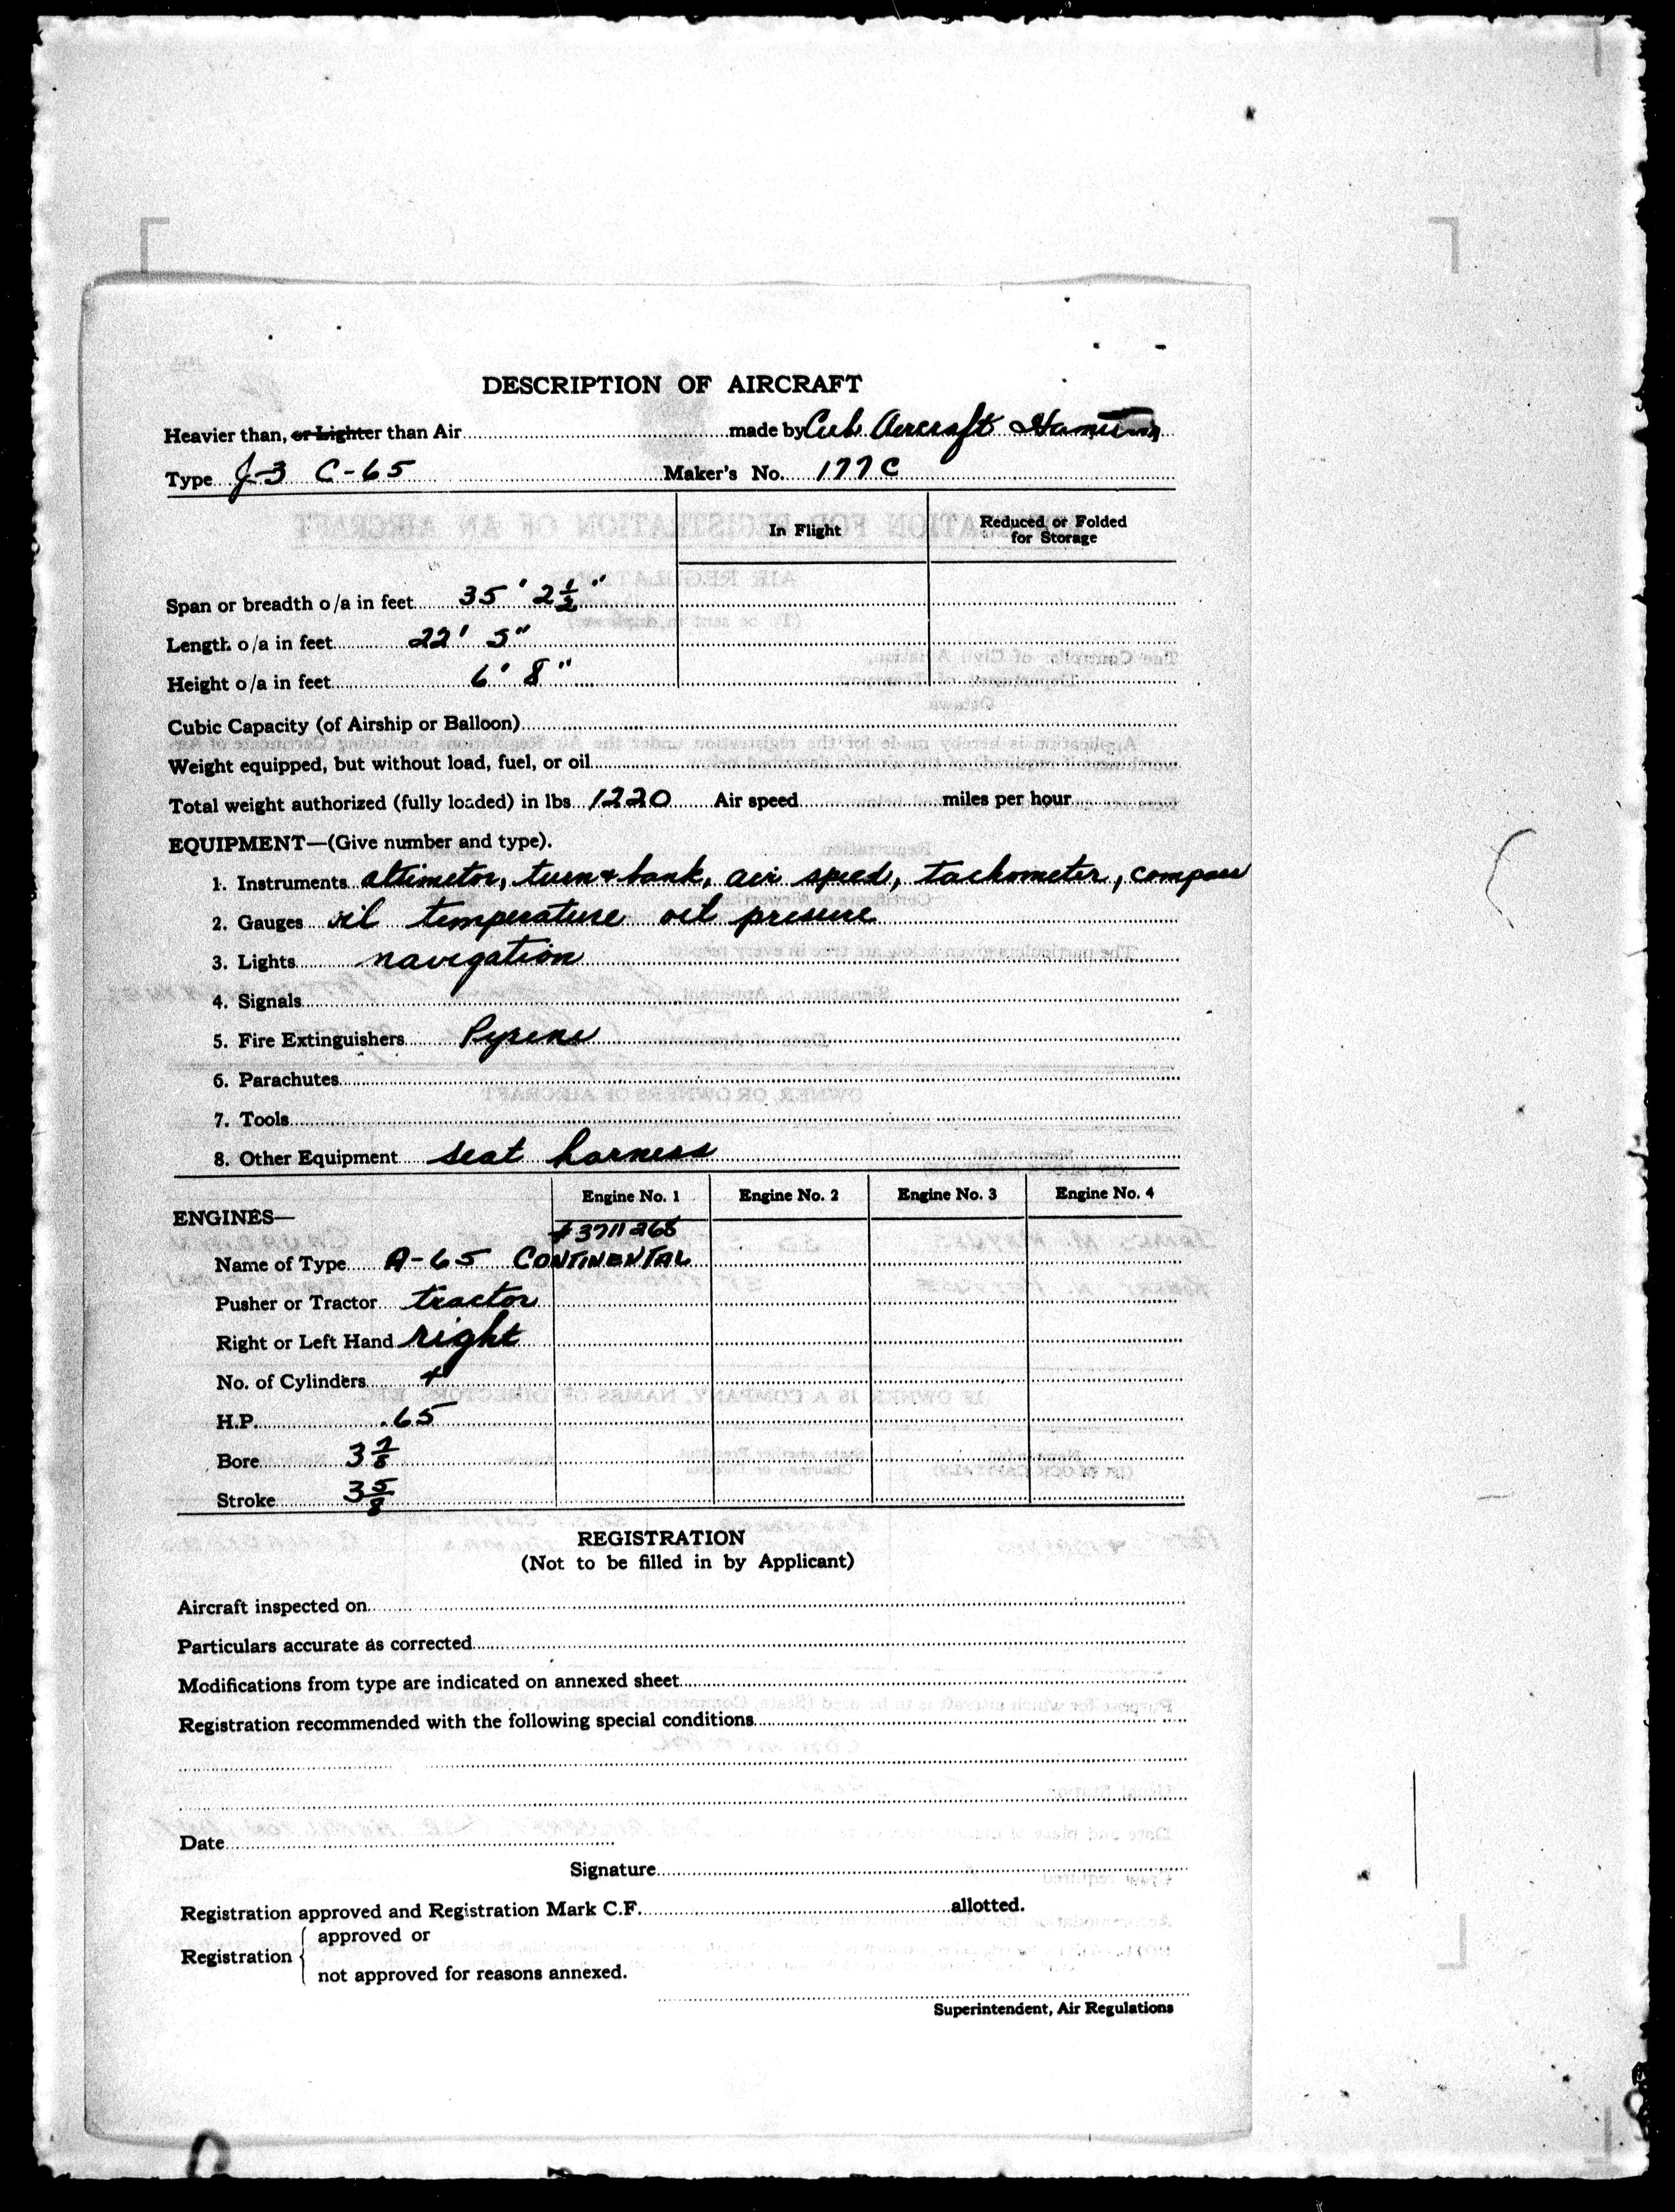 DESCRIPTION OF AIRCRAFT
Heavier than, or Lighter than Air made by Cub Aircraft
Type J-3 C-65 Maker's No. 177C
In Flight Reduced or Folded for Storage
Span or breadth o/a in feet 35' 2½"
Length o/a in feet 22' 5"
Height o/a in feet 6' 8"
Cubic Capacity (of Airship or Balloon)
Weight equipped, but without load, fuel, or oil
Total weight authorized (fully loaded) in lbs 1220 Air speed miles per hour
EQUIPMENT—(Give number and type).
1. Instruments altimeter, turn & bank, air speed, tachometer, compass
2. Gauges oil temperature oil presure
3. Lights navigation
4. Signals
5. Fire Extinguishers Pyrene
6. Parachutes
7. Tools
8. Other Equipment seat harness
Engine No. 1 Engine No. 2 Engine No. 3 Engine No. 4
ENGINES—
#3711268
Name of Type A-65 CONTINENTAL
Pusher or Tractor tractor
Right or Left Hand right
No. of Cylinders 4
H.P. 65
Bore 3 7/8
Stroke 3 5/8
REGISTRATION
(Not to be filled in by Applicant)
Aircraft inspected on
Particulars accurate as corrected
Modifications from type are indicated on annexed sheet
Registration recommended with the following special conditions
Date
Signature
Registration approved and Registration Mark C.F. allotted.
approved or
Registration
not approved for reasons annexed.
Superintendent, Air Regulations